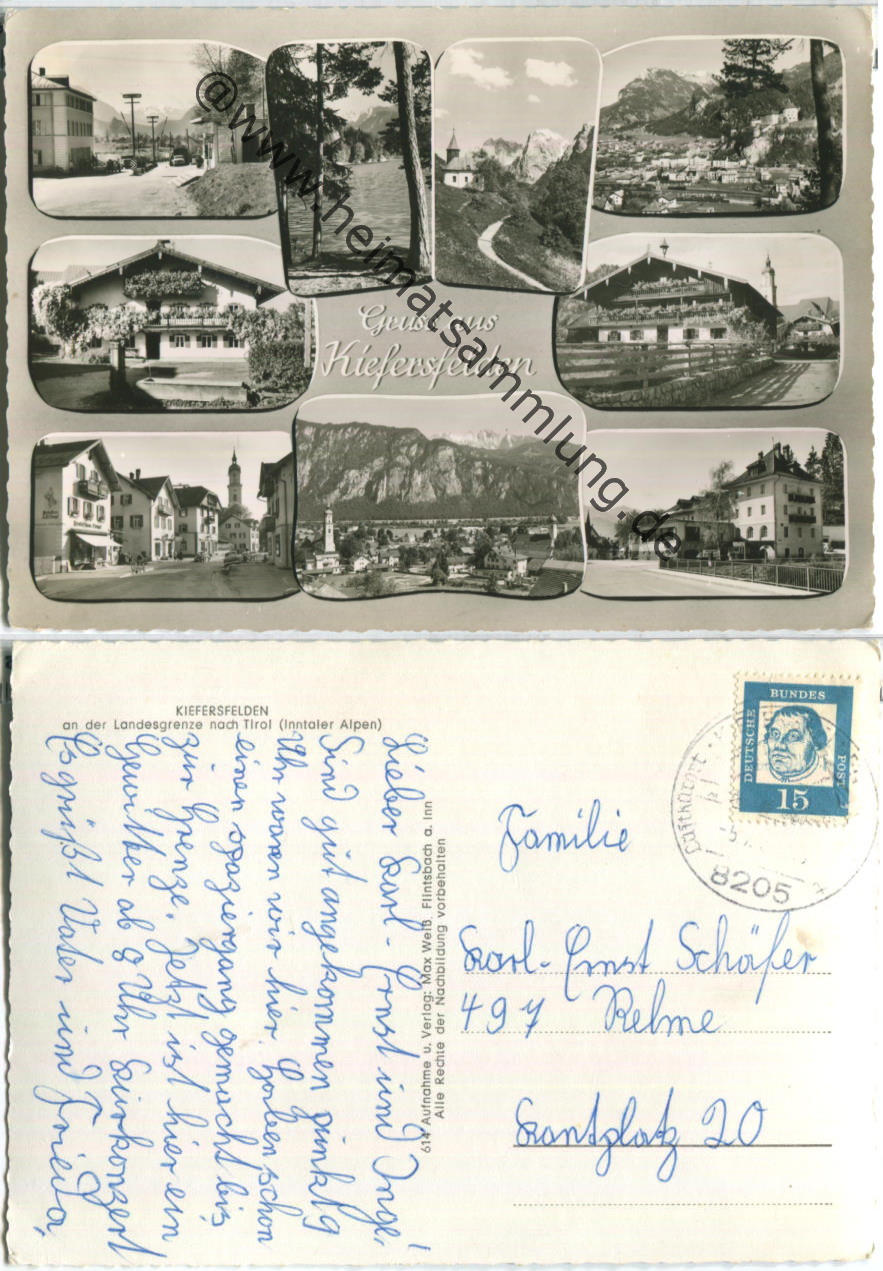 @www.heimatsammlung.de
Gruss aus
Kiefersfelden
KIEFERSFELDEN
an der Landesgrenze nach Tirol (Inntaler Alpen)
Lieber Karl-Ernst und Inge!
Sind gut angekommen pünktlg
Uhr waren wir hier. Haben schon
einen spaziergang gemacht bis
zur Grenze. Jetzt ist hier ein
Gewitter ab 8 Uhr Kurkonzert
Es grüßt Vater und Frieda,
614 Aufnahme u. Verlag: Max Weiß, Flintsbach a. Inn
Alle Rechte der Nachbildung vorbehalten
DEUTSCHE
BUNDES
POST
15
Luftkurort
8205
Familie
Karl-Ernst Schäfer
497 Rehme
Kantplatz 20